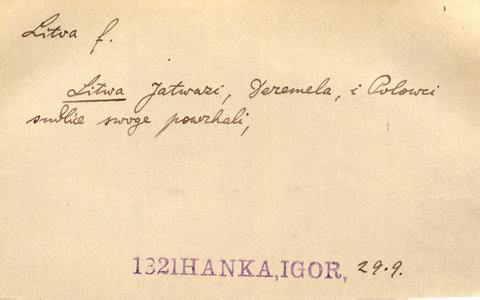 Litva f.
Litwa Jatwazi, Deremela, i Polowci
sudlice swoge powrhali,
1321HANKA,IGOR, 29.9.